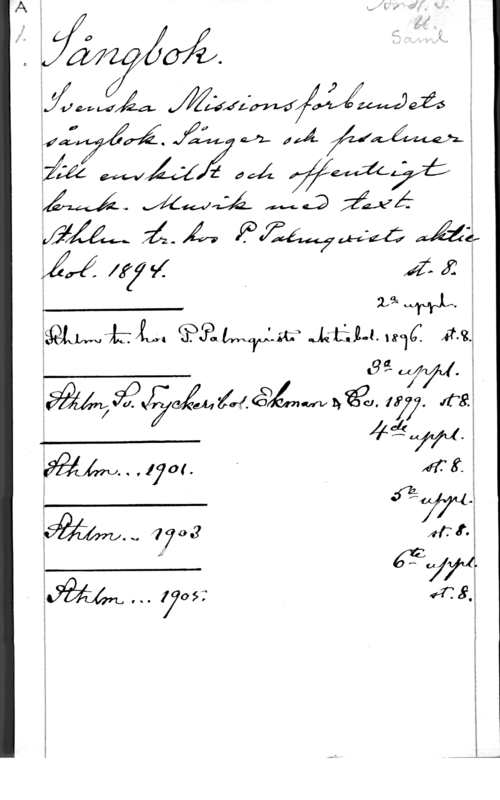 A
Andl. S.
1.
U.
Saml
Sångbok.
Svenska Missionsförbundets
sångbok. Sånger och psalmer
till enskildt och offentligt
bruk. Musik med text.
Sthlm tr. hos P. Palmquists aktie
bol. 1894. st. 8.
2a uppl.
Sthlm tr. hos P. Palmquists aktiebol. 1896. st. 8.
3a uppl.
Sthlm, Sv. Tryckeribol. Ekman & Co. 1899. st 8.
4de uppl.
Sthlm... 1901. st. 8.
5te uppl.
Sthlm... 1903 st. 8.
6te uppl.
Sthlm... 1905. st. 8.